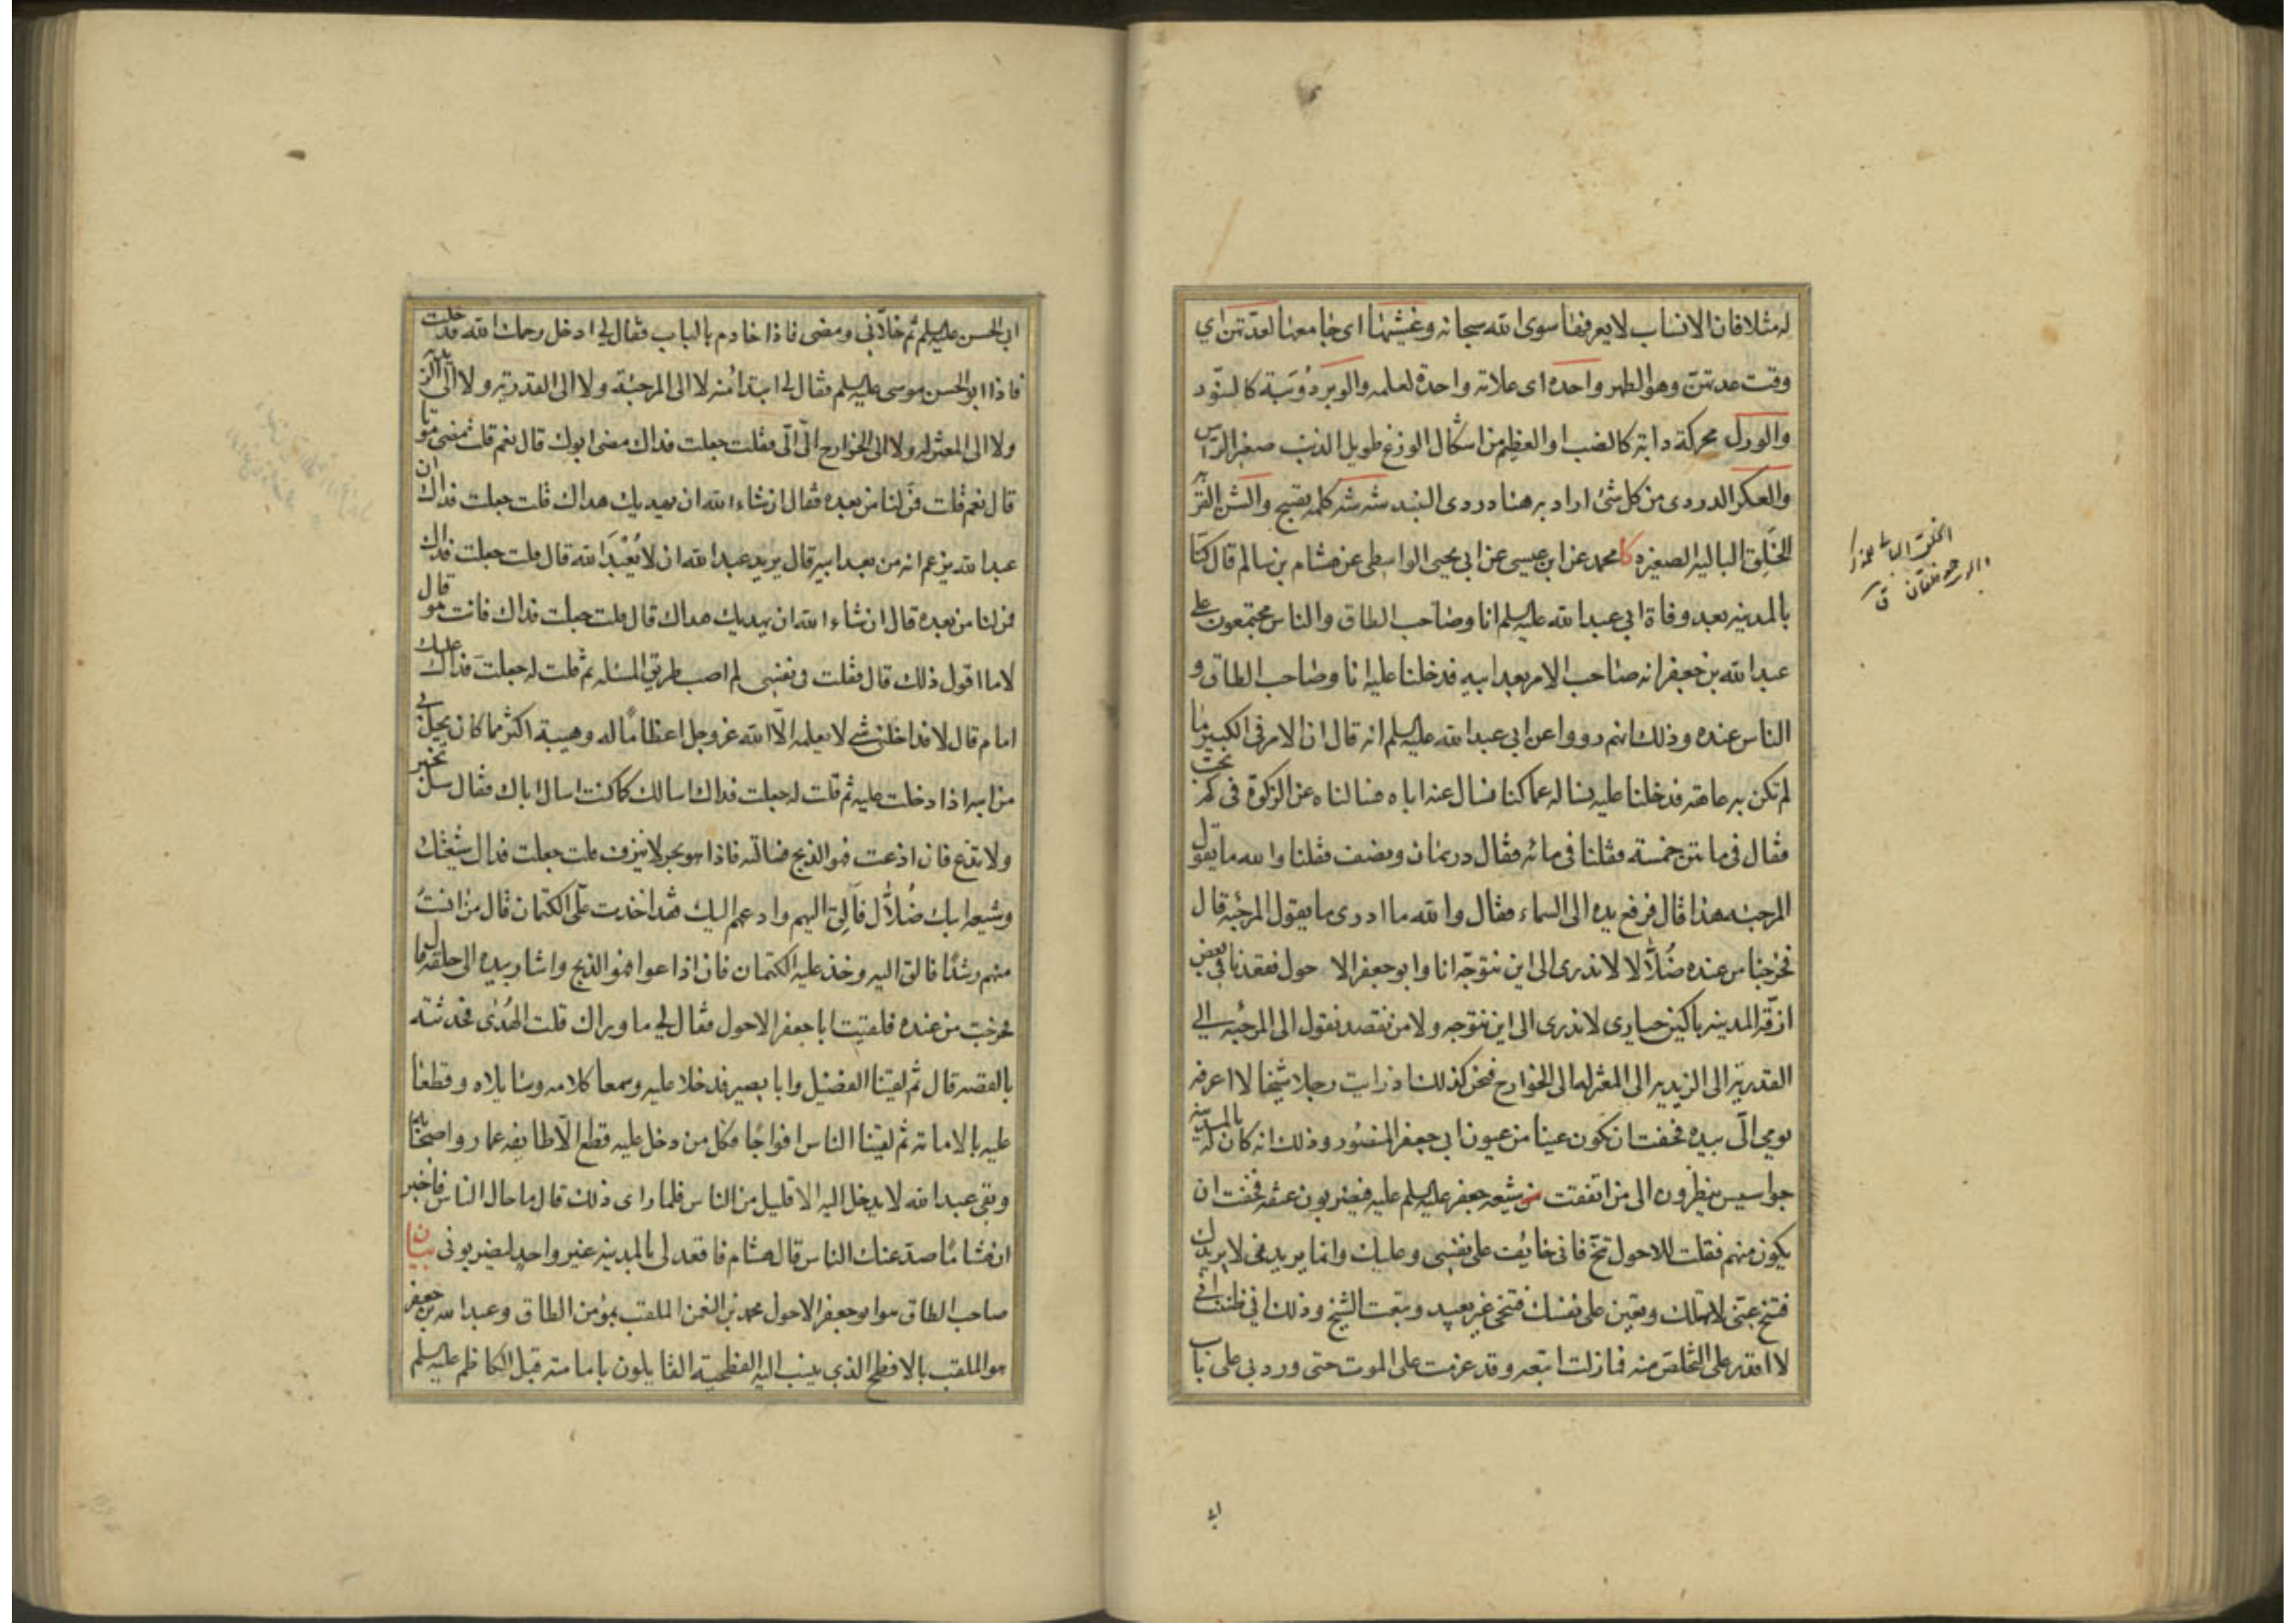 له مثلا فان الانساب لا يعرفها سوى الله سبحانه وغشيتها اى جامعها لعدتهن اي
وقت عدتهن وهو الطهر واحده اى علانه واحدة لعلمه والوبر دُوَيبَة كالسنّور
والورل محركة دابة كالضب او العظيم من اشكال الوزغ طويل الذنب صغير الراس
والعكر الدردى من كل شئ اراد به هنا دردى النبيذ شه شه كلمه تقبيح والشن القربه
الخَلِق الباليه الصغيره كا محمد عن ابن عيسى عن ابي يحيى الواسطى عن هشام بن سالم قال كنّا
بالمدينه بعد وفاة ابي عبد الله عليه السلم انا وصاحب الطاق والناس مجتمعون على
عبد الله بن جعفر انه صاحب الامر بعد ابيه فدخلنا عليه انا وصاحب الطاق و
الناس عنده وذلك انهم رووا عن ابي عبد الله عليه السلم انه قال ان الامر فى الكبير ما
لم تكن به عاهه فدخلنا عليه نساله عما كنا نسال عنه اباه فسالناه عن الزكوة فى كم تجب
فقال فى مائتين خمسة فقلنا فى مائه فقال درهمان ونصف فقلنا والله ما يقول
المرجئه هذا قال فرفع يده الى السماء فقال والله ما ادرى ما يقول المرجئه قال
فخرجنا من عنده ضُلاّلا لا ندرى الى اين نتوجّه انا وابو جعفر الاحول فقعدنا فى بعض
ازقّه المدينه باكين حيارى لا ندرى الى اين نتوجه ولا من نقصد نقول الى المرجئه الى
القدريه الى الزيديه الى المعتزله الى الخوارج فنحن كذلك اذ رايت رجلا شيخا لا اعرفه
يومى الىّ بيده فخفت ان يكون عينا من عيون ابي جعفر المنصور وذلك انه كان له بالمدينه
جواسيس ينظرون الى من اتفقت من شيعه جعفر عليه السلم عليه فيضربون عنقه فخفت ان
يكون منهم فقلت للاحول تنحّ فانى خائف على نفسى وعليك وانما يريدنى لا يريدك
فتنح عنى لا تهلك وتعين على نفسك فتنحى غير بعيد وتبعت الشيخ وذلك اني ظننت انى
لا اقدر على التخلص منه فما زلت اتبعه وقد عزمت على الموت حتى ورد بي على باب
ابي الحسن عليه السلم ثم خلاّنى ومضى فاذا خادم بالباب فقال لى ادخل رحمك الله فدخلت
فاذا ابو الحسن موسى عليه السلم فقال لى ابتداءً منه لا الى المرجئة ولا الى القدرية ولا الى الزيديه
ولا الى المعتزله ولا الى الخوارج الىّ الىّ فقلت جعلت فداك مضى ابوك قال نعم قلت مضى موتا
قال نعم قلت فمن لنا من بعده فقال ان شاء الله ان يهديك هداك قلت جعلت فداك ان
عبد الله يزعم انه من بعد ابيه قال يريد عبد الله ان لا يُعْبَدَ الله قال قلت جعلت فداك
فمن لنا من بعده قال ان شاء الله ان يهديك هداك قال قلت جعلت فداك فانت هو قال
لا ما اقول ذلك قال فقلت فى نفسى لم اصب طريق المسئله ثم قلت له جعلتَ فداك عليك
امام قال لا فداخلنى شئ لا يعلمه الاّ الله عز وجل اعظامًا له وهيبة اكثر مما كان يحل بى
من ابيه اذا دخلت عليه ثم قلت له جعلت فداك اسالك كما كنت اسال اباك فقال سل تخبر
ولا تذع فان اذعت فهو الذبح فسالته فاذا هو بحر لا ينزف قلت جعلت فداك شيعتك
وشيعه ابيك ضُلاّل فاَلِقى اليهم وادعهم اليك فقد اخذت علىّ الكتمان قال من انستَ
منهم رشدًا فالق اليه وخذ عليه الكتمان فان اذاعوا فهو الذبح واشار بيده الى حلقه قال
فخرجت من عنده فلقيت ابا جعفر الاحول فقال لى ما وراك قلت الهُدٰى فحدثته
بالقصه قال ثم لقينا الفضيل وابا بصير فدخلا عليه وسمعا كلامه وسايلاه وقطعا
عليه بالامامة ثم لقينا الناس افواجًا فكل من دخل عليه قطع الاّ طايفه عمار واصحابه
وبقى عبد الله لا يدخل اليه الا قليل من الناس فلما راى ذلك قال ما حال الناس فاخبر
ان هشامًا صدّ عنك الناس قال هشام فاقعد لى بالمدينه غير واحد ليضربونى بيان
صاحب الطاق هو ابو جعفر الاحول محمد بن النعمن الملقب بمؤمن الطاق وعبد الله بن جعفر
هو الملقب بالافطح الذي ينسب اليه الفطحية القايلون بامامته قبل الكاظم عليه السلم